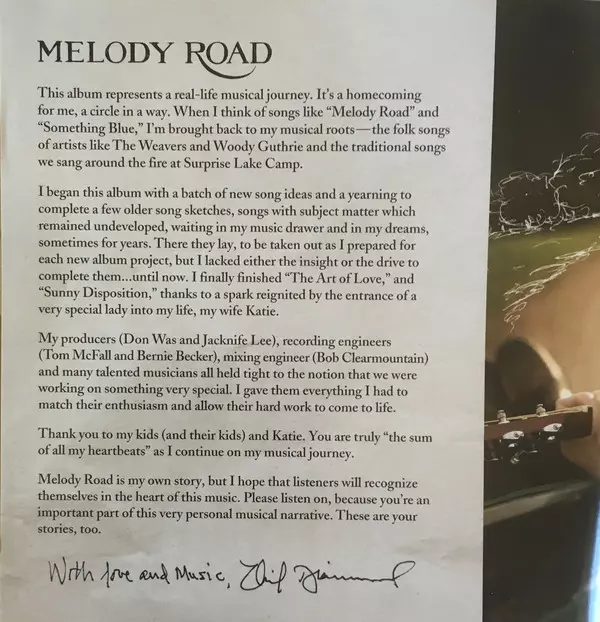 MELODY ROAD
This album represents a real-life musical journey. It's a homecoming
for me, a circle in a way. When I think of songs like “Melody Road” and
“Something Blue,” I'm brought back to my musical roots—the folk songs
of artists like The Weavers and Woody Guthrie and the traditional songs
we sang around the fire at Surprise Lake Camp.
I began this album with a batch of new song ideas and a yearning to
complete a few older song sketches, songs with subject matter which
remained undeveloped, waiting in my music drawer and in my dreams,
sometimes for years. There they lay, to be taken out as I prepared for
each new album project, but I lacked either the insight or the drive to
complete them...until now. I finally finished “The Art of Love,” and
“Sunny Disposition,” thanks to a spark reignited by the entrance of a
very special lady into my life, my wife Katie.
My producers (Don Was and Jacknife Lee), recording engineers
(Tom McFall and Bernie Becker), mixing engineer (Bob Clearmountain)
and many talented musicians all held tight to the notion that we were
working on something very special. I gave them everything I had to
match their enthusiasm and allow their hard work to come to life.
Thank you to my kids (and their kids) and Katie. You are truly “the sum
of all my heartbeats” as I continue on my musical journey.
Melody Road is my own story, but I hope that listeners will recognize
themselves in the heart of this music. Please listen on, because you're an
important part of this very personal musical narrative. These are your
stories, too.
With love and Music, Neil Diamond